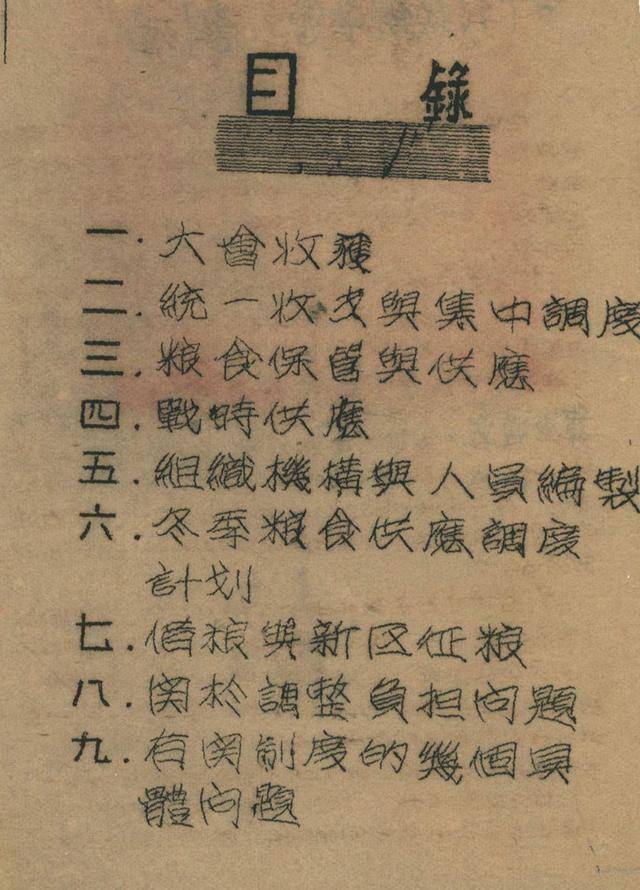 目錄
一.大會收穫
二.統一收支與集中調度
三.粮食保管與供應
四.戰時供應
五.組織機構與人員編製
六.冬季粮食供應調度
計划
七.借粮與新区征粮
八.関於調整負担问題
九.有関制度的幾個具
體问題